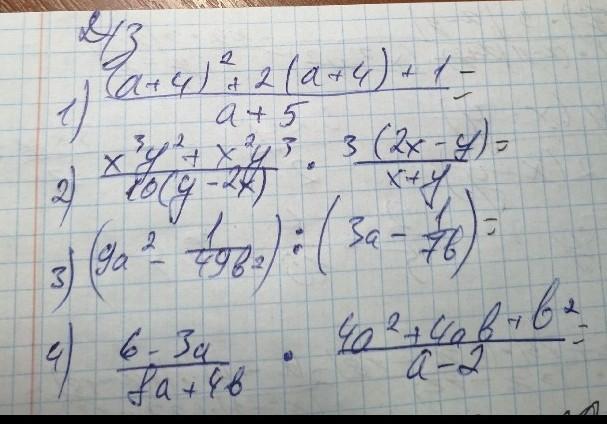 Д/З
1) ((a+4)² + 2(a+4) + 1)/(a+5) =
2) (x³y² + x²y³)/(10(y-2x)) · (3(2x-y))/(x+y) =
3) (9a² - 1/(49b²)) : (3a - 1/(7b)) =
4) (6-3a)/(8a+4b) · (4a²+4ab+b²)/(a-2) =